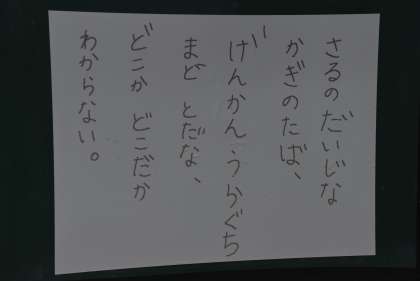 さるのだいじな
かぎのたば、
げんかん、うらぐち
まど とだな、
どこか どこだか
わからない。